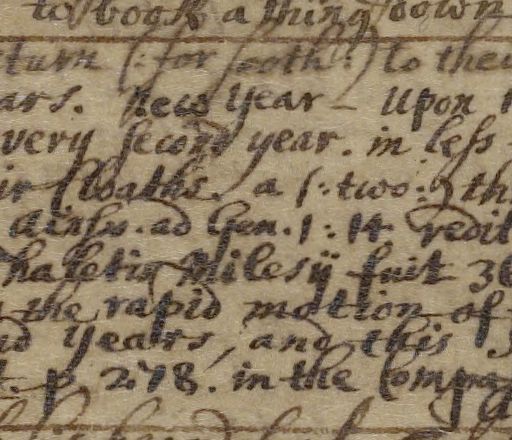 to book a thing down
turn (: for sooth :) to the
ars. New year – Upon
very second year. in less
(loaths. a (: two :) th
Ains. ad Gen. 1: 14 redit
Thaletis Milesij fuit 36
the rapid motion of
years, and this
p. 278. in the Compa